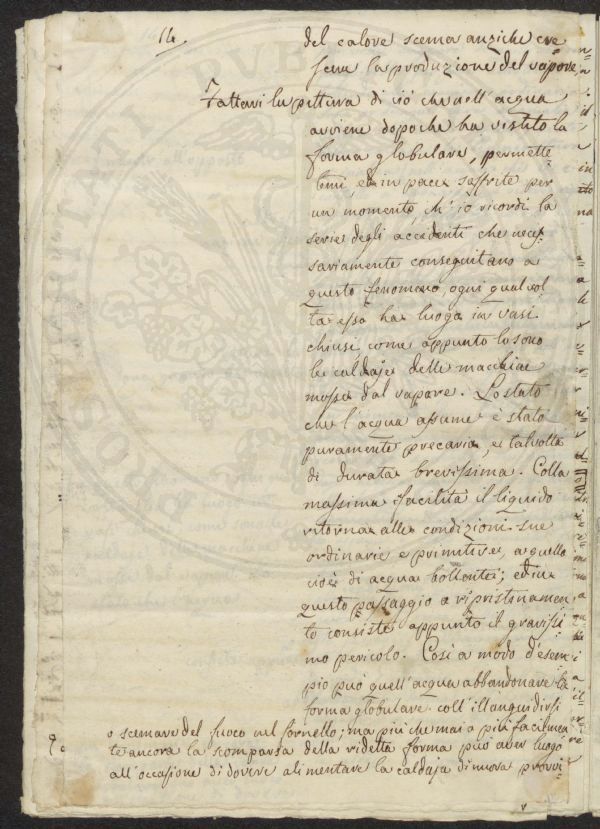 14.
del calore scema anziche cre
scere la produzione del vapore,
Fattavi la pittura di ciò che nell' acqua
avviene dopo che ha vistito la
forma globulare, permette
temi, ed in pace soffrite per
un momento, ch' io ricordi la
serie degli accidenti che neces
sariamente conseguitano a
questo fenomeno, ogni qual vol
ta esso ha luogo in vasi
chiusi, come appunto lo sono
le caldaje delle macchine
mosse dal vapore. Lo stato
che l'acqua assume è stato
puramente precario, e talvolta
di durata brevissima. Colla
massima facilità il liquido
ritorna alle condizioni sue
ordinarie e primitive, a quelle
cioè di acqua bollente; ed in
questo passaggio a ripristinamen
to consiste appunto il gravissi
mo pericolo. Così a modo d'esem
pio può quell' acqua abbandonare la
forma globulare coll' illanguidirsi
o scemare del fuoco nel fornello; ma più che mai o più facilmen
te ancora la scomparsa della ridetta forma può aver luogo
all' occasione di dovere alimentare la caldaja di nuova provvi